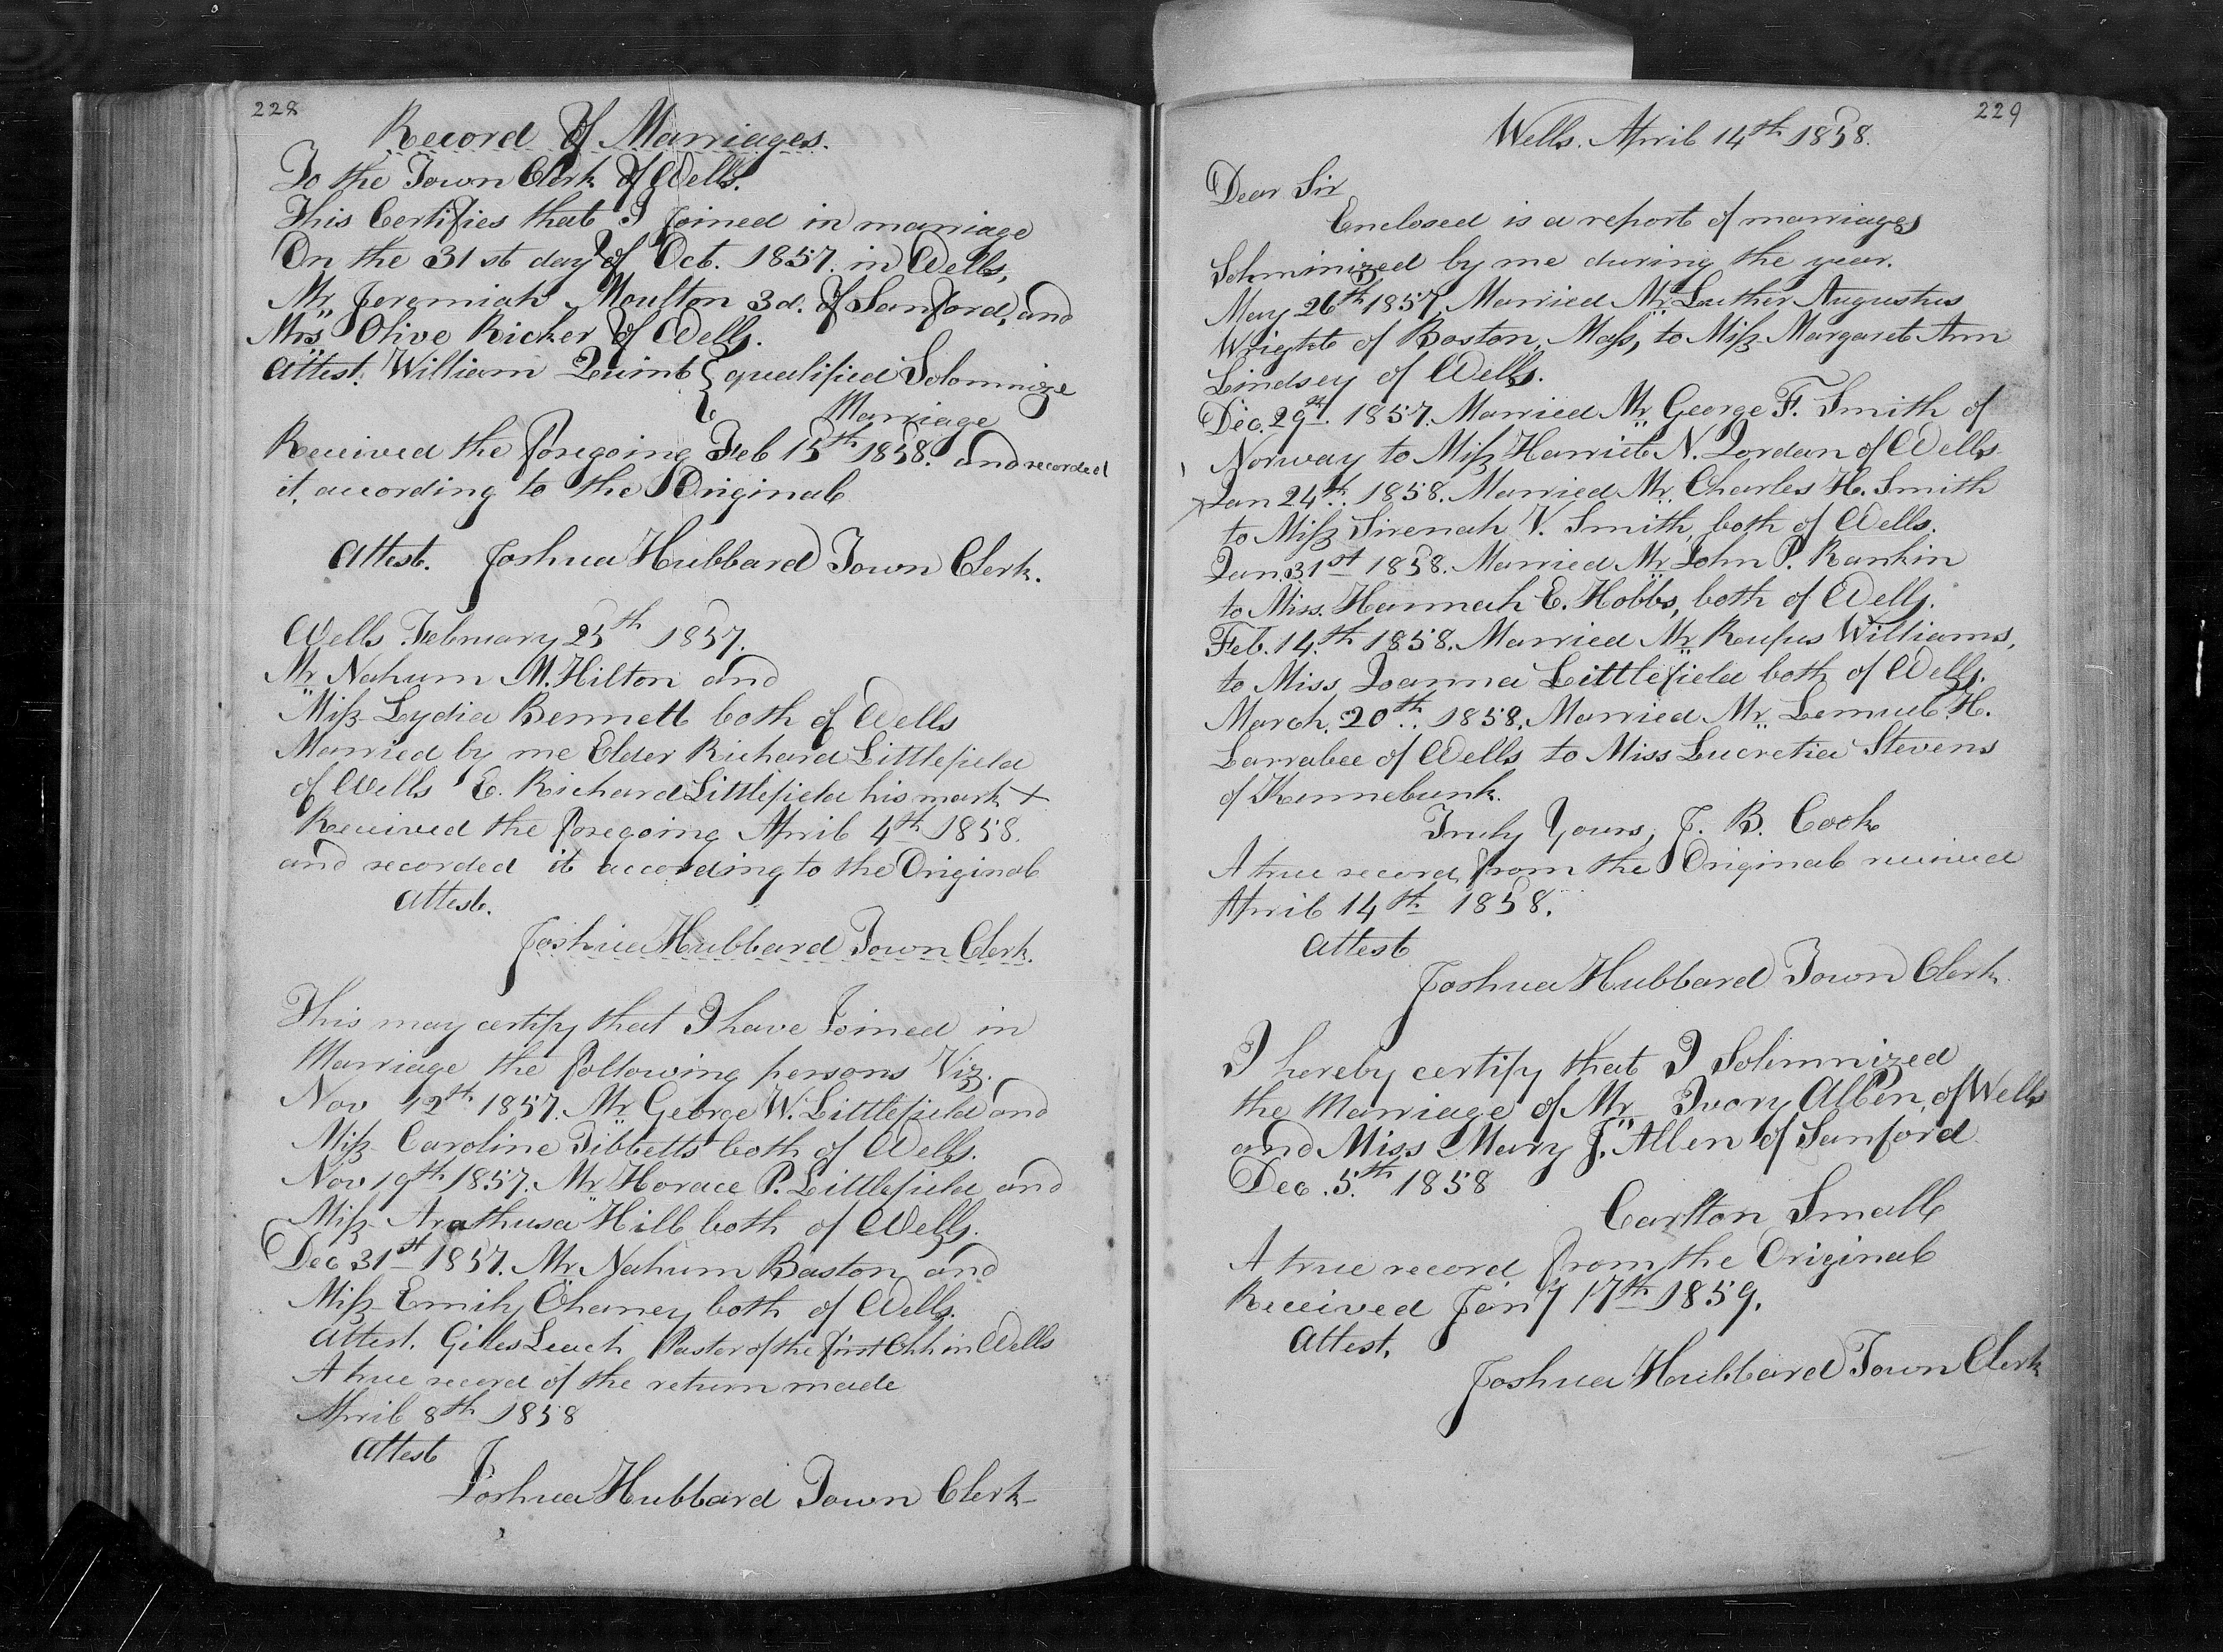 228
Record Of Marriages.
To the Town Clerk Of Wells.
This Certifies that I joined in marriage
On the 31st day Of Oct. 1857. in Wells,
Mr. Jeremiah Moulton 3d. Of Sanford, and
Mrs Olive Ricker Of Wells.
Attest. William Quint { qualified Solomnize
Marriage
Received the foregoing Feb 15th 1858. and recorded
it, according to the Original
Attest. Joshua Hubbard Town Clerk.
Wells February 25th 1857.
Mr Nahum M. Hilton and
Miss Lydia Bennett both of Wells
Married by me Elder Richard Littlefield
of Wells E. Richard Littlefield his mark X
Received the foregoing April 4th 1858.
and recorded it according to the Original
Attest.
Joshua Hubbard Town Clerk.
This may certify that I have Joined in
Marriage the following persons Viz.
Nov 12th 1857. Mr George W. Littlefield and
Miss Caroline Tibbetts both of Wells.
Nov 19th 1857. Mr Horace P. Littlefield and
Miss Arathusa Hill both of Wells.
Dec 31st 1857. Mr Nahum Baston and
Miss Emily Chaney both of Wells.
Attest. Giles Leach Pastor of the first Chh in Wells
A true record of the return made
April 8th 1858
Attest
Joshua Hubbard Town Clerk
229
Wells. April 14th 1858.
Dear Sir
Enclosed is a report of marriages
Solminized by me during the year.
May 26th 1857, Married Mr. Luther Augustus
Wright of Boston, Mass, to Miss Margaret Ann
Lindsey of Wells.
Dec. 29th. 1857. Married Mr George F. Smith of
Norway to Miss Harriet N. Jordan of Wells.
Jan 24th. 1858. Married Mr. Charles H. Smith
to Miss Sirenah V. Smith, both of Wells.
Jan. 31st 1858. Married Mr John P. Rankin
to Miss. Hannah E. Hobbs, both of Wells.
Feb. 14.th 1858. Married Mr Rufus Williams,
to Miss Joanna Littlefield both of Wells.
March. 20th. 1858. Married Mr. Lemuel H.
Larrabee of Wells to Miss Lucretia Stevens
of Kennebunk.
Truly Yours, J. B. Cook
A true record from the Original received
April 14th 1858.
Attest
Joshua Hubbard Town Clerk.
I hereby certify that I Solemnized
the Marriage of Mr Ivory Allen, of Wells
and Miss Mary J. Allen of Sanford
Dec. 5.th 1858
Carlton Small
A true record from the Original
Received Jan'y 17th 1859.
Attest,
Joshua Hubbard Town Clerk